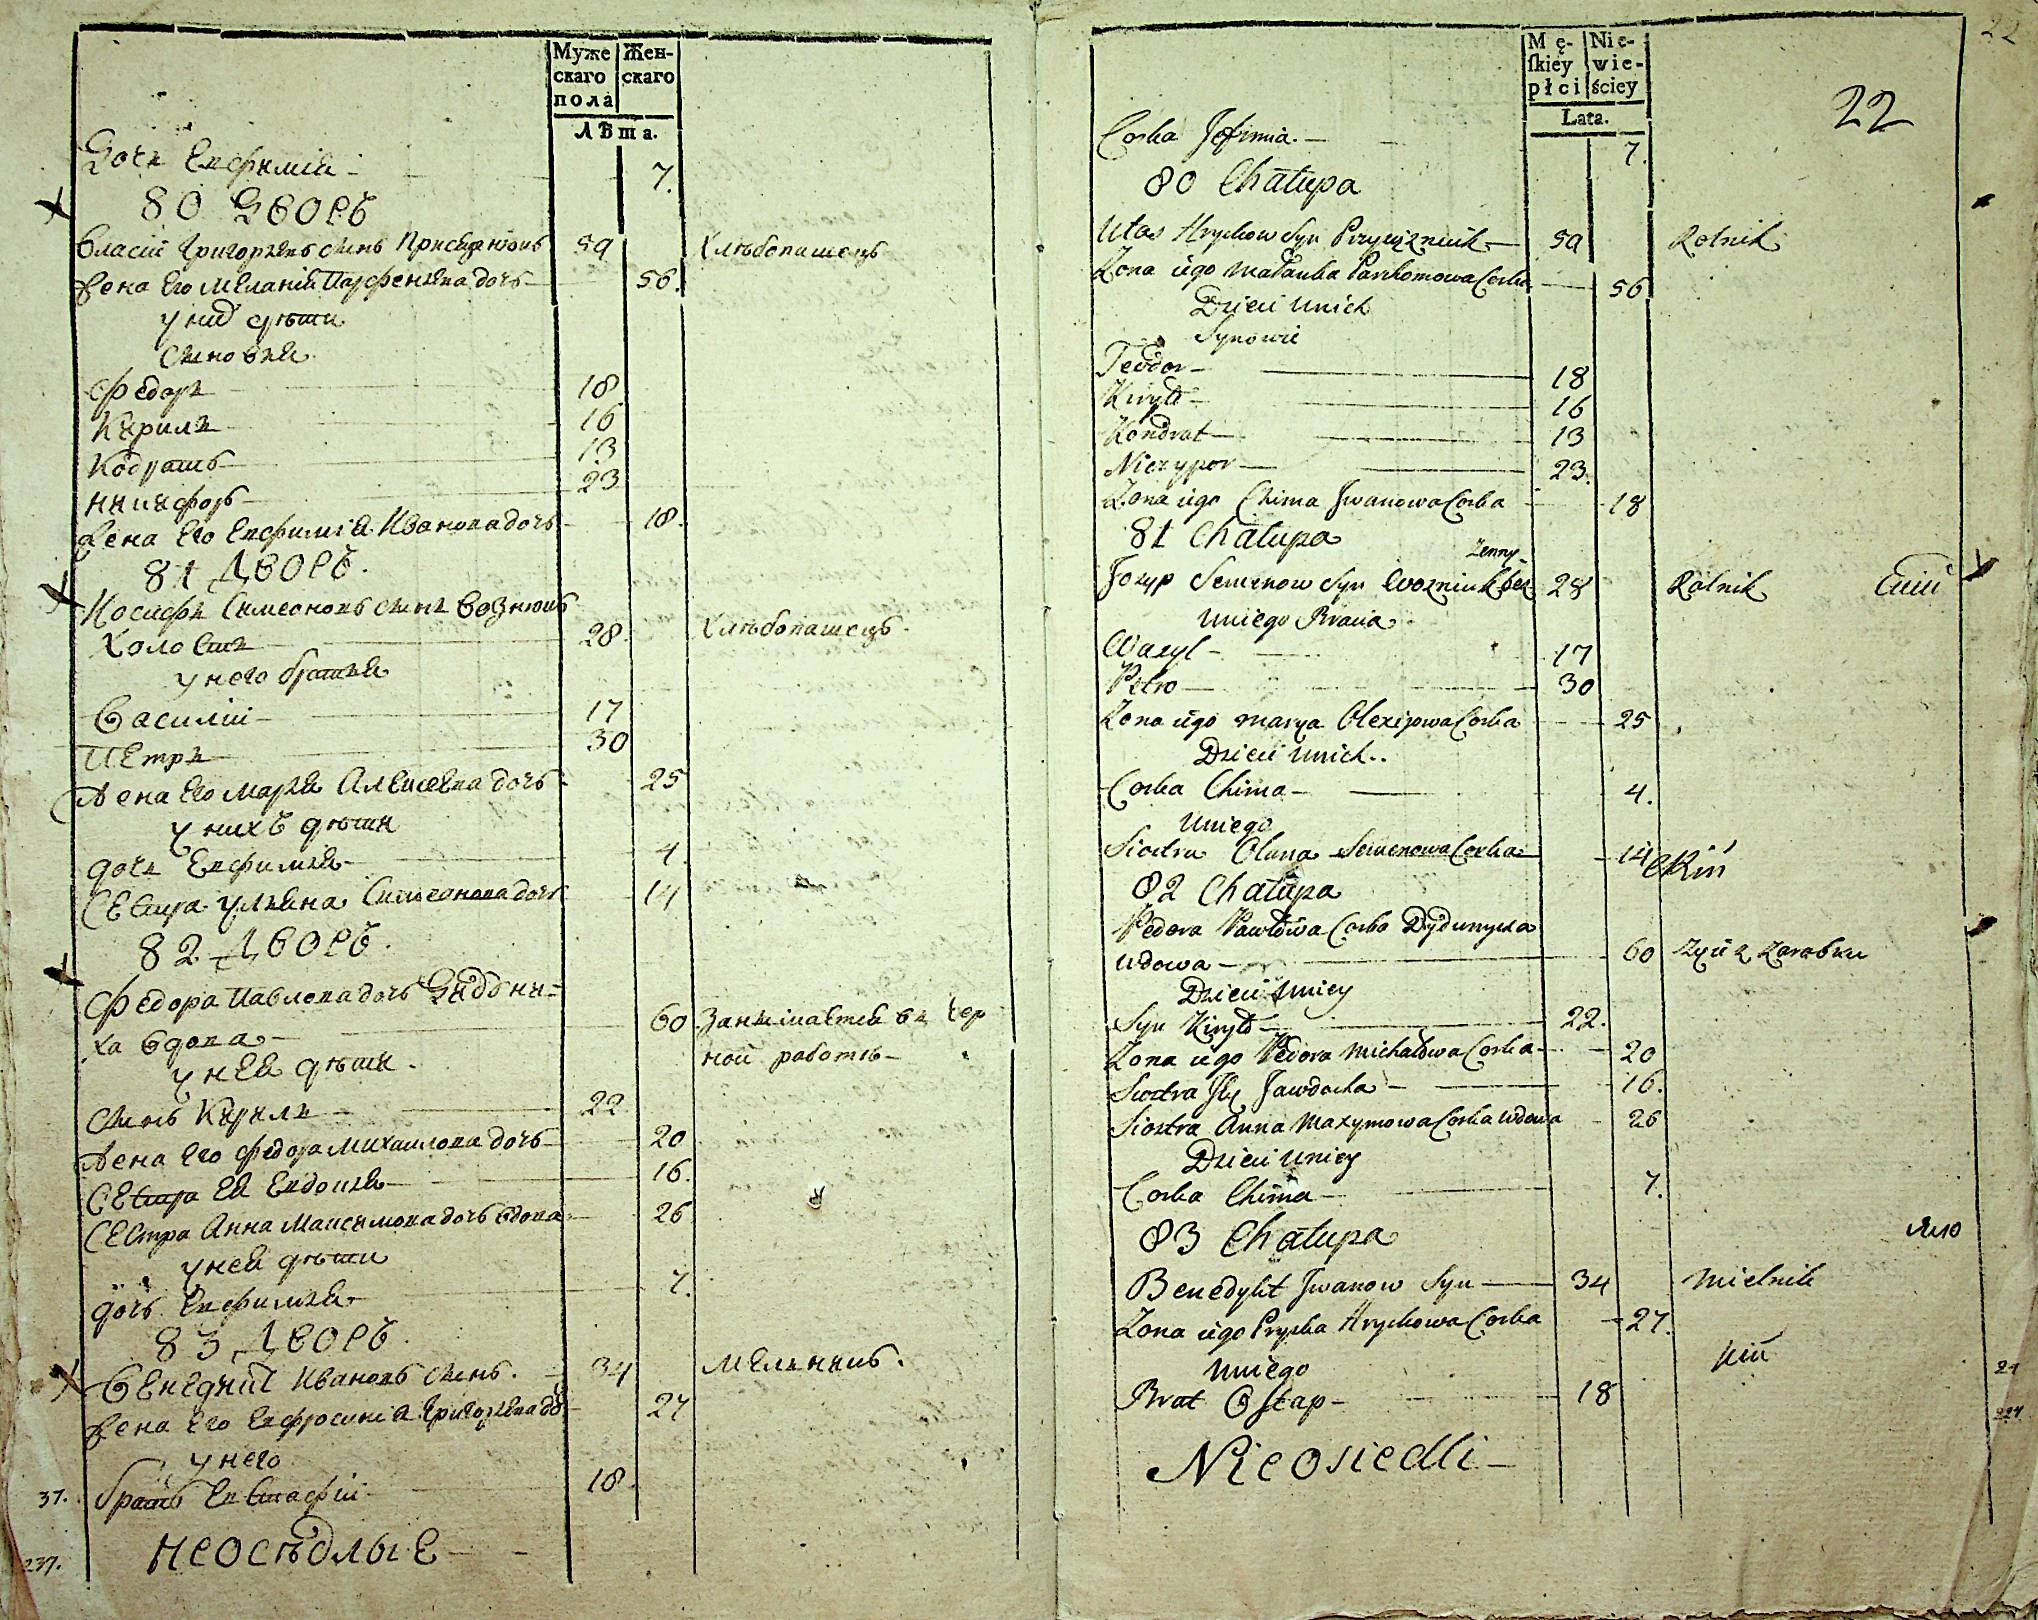 Муже
скаго
пола
Жен-
скаго
Лѣта.
Дочь Евфимія 7.
80 Дворъ
Власій Григорьевъ сынъ 59 Хлѣбопашецъ
Жена Его Меланія Парфеньева дочь 56.
у них дѣти
сыновья
Федоръ 18
Кирилъ 16
Кодратъ 13
Никифоръ 23
Жена Его Евфимія Иванова дочь 18.
81 Дворъ.
Иосифъ Симеоновъ сынъ Вознюкъ
Холостъ 28. Хлѣбопашецъ.
у него братья
Василій 17
Петръ 30
Жена Его Марья Алексеева дочь 25
у нихъ дѣти
дочь Евфимья 4.
Сестра Ульяна Симеонова дочь 14
82 Дворъ.
Федора Павлова дочь
ха вдова 60 Занимается въ чер
ной работѣ
у нея дѣти.
сынъ Кирилъ 22
Жена Его Федора Михайлова дочь 20
Сестра Ея Евдокія 16.
Сестра Анна Максимова дочь вдова 26
у ней дѣти
дочь Евфимья 7.
83 Дворъ.
Бенедикт Ивановъ сынъ. 34 Мельникъ.
Жена Его Евфросинія Григорьева до 27
у него
37. братъ Евстафій 18.
237. Неосѣдлые
22
Mę-
skiey
płci
Nie-
wie-
ściey
Lata.
22
Corka Jofimia. 7.
80 Chałupa
Ułas Hryckow Syn 59 Rolnik
Zona iego Małanka Parchomowa Corka 56
Dzieci u nich
Synowie
Teodor 18
Kiryło 16
Kondrat 13
Niczypor 23.
Zona iego Chima Jwanowa Corka 18
81 Chałupa
żenny
Jozyp Semenow Syn Wozniuk bez 28 Rolnik
u niego Bracia.
Wasyl 17
Petro 30
Zona iego Marya Olexijowa Corka 25
Dzieci u nich..
Corka Chima 4.
u niego
Siostra Olana Semenowa Corka 14
82 Chałupa
Fedora Pawłowa Corka Dydunycha
wdowa 60 żyie z zarobku
Dzieci u niey
Syn Kiryło 22.
Zona iego Fedora Michałowa Corka 20
Siostra Jey Jawdocha 16.
Siostra Anna Maxymowa Corka wdowa 26
Dzieci u niey
Corka Chima 7.
83 Chałupa
Benedykt Jwanow Syn 34 Mielnik
Zona iego Pryska Hryckowa Corka 27.
u niego
Brat Ostap 18
Nieosiedli